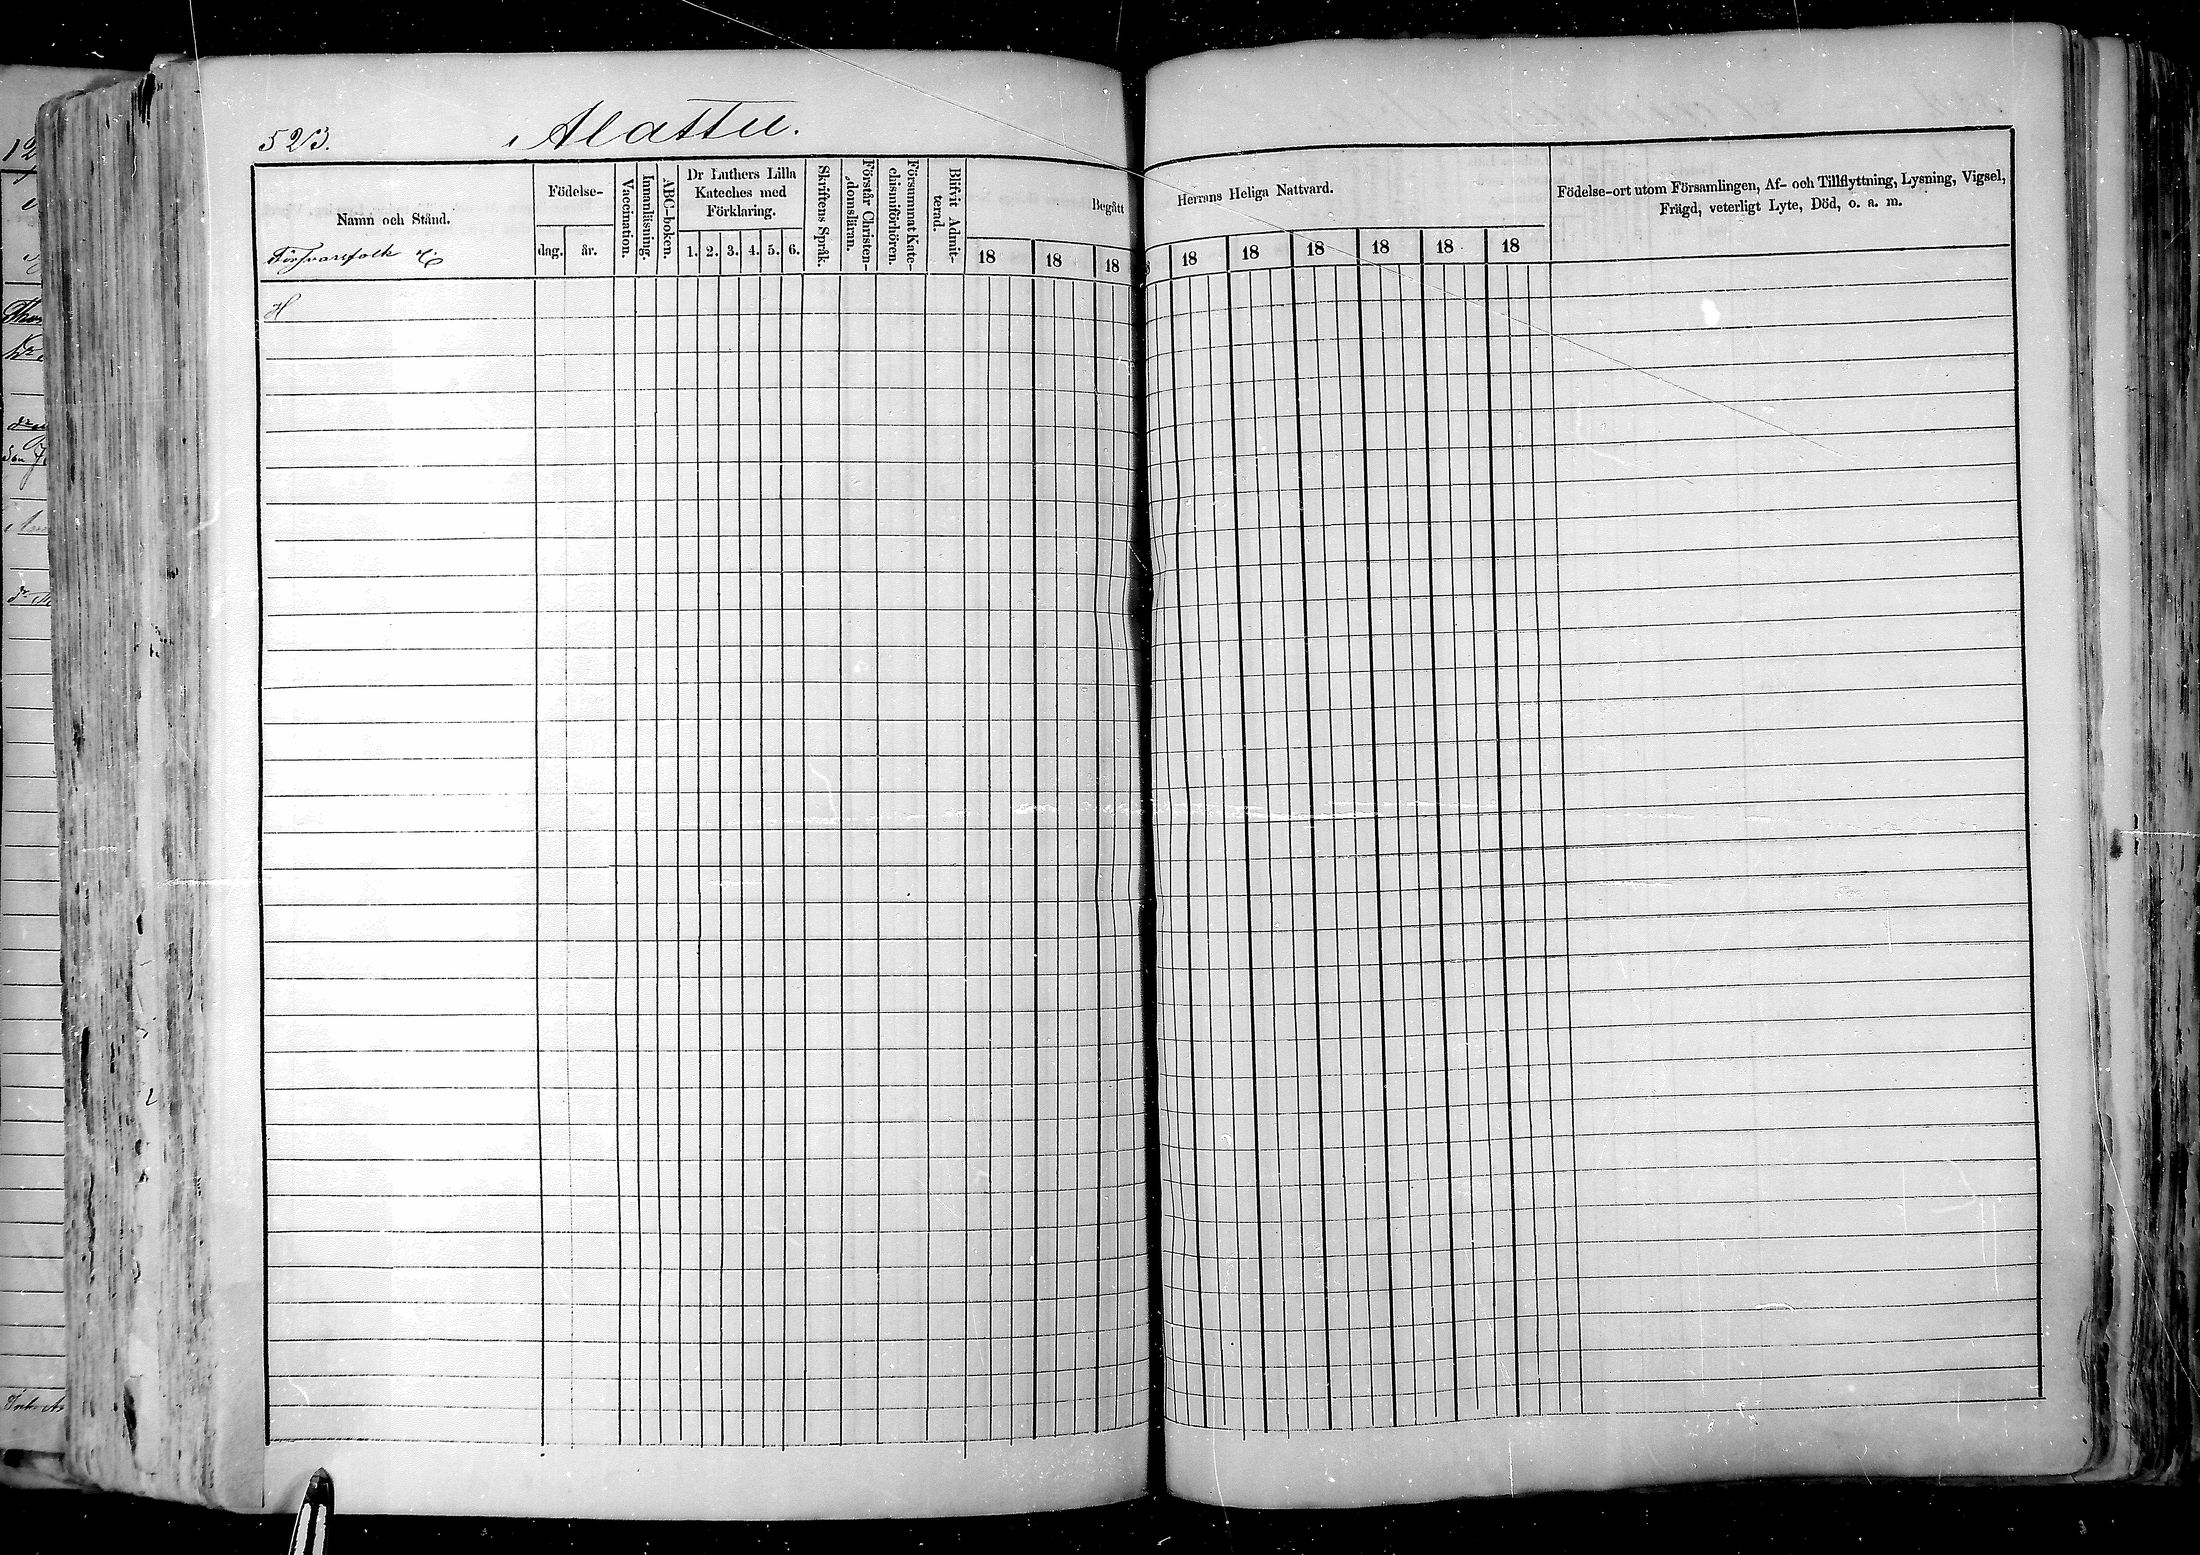 523.
Alattu.
Namn och Stånd.
Försvarsfolk
Födelse-
dag. år.
Vaccination.
Innanläsning.
ABC-boken.
Dr Luthers Lilla
Kateches med
Förklaring.
1. 2. 3. 4. 5. 6.
Skriftens Språk.
Förstår Christen-
domsläran.
Försummat Kate-
chismiförhören.
Blifvit Admit-
terad.
Begått Herrans Heliga Nattvard.
18 18 18 18 18 18 18 18 18
Födelse-ort utom Församlingen, Af- och Tillflyttning, Lysning, Vigsel,
Frägd, veterligt Lyte, Död, o. a. m.
H